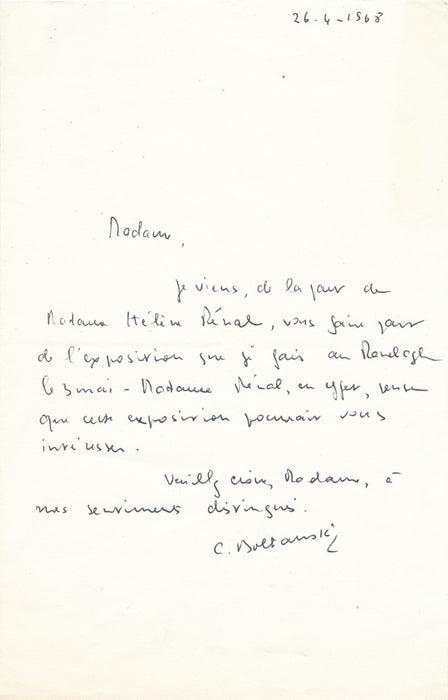 26-4-1968
Madame,
Je viens, de la part de
Madame Hélène Rénal, vous faire part
de l'exposition que je fais au Ranelagh
le 3 mai - Madame Rénal, en effet, pense
que cette exposition pourrait vous
intéresser.
Veuillez croire, Madame, à
mes sentiments distingués.
C. Boltanski